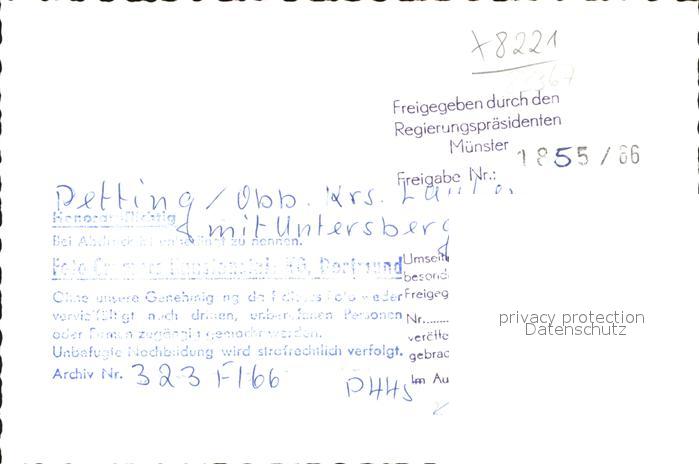 +8221
Freigegeben durch den
Regierungspräsidenten
Münster
Freigabe Nr.: 1855/66
Petting / Obb. Krs.
mit Untersberg
Honorarpflichtig
Bei Abdruck ist unbedingt zu nennen.
Foto Cramers Kunstanstalt KG, Dortmund
Ohne unsere Genehmigung darf dieses Foto weder
vervielfältigt noch dritten, unberufenen Personen
oder Firmen zugängig gemacht werden.
Unbefugte Nachbildung wird strafrechtlich verfolgt.
Archiv Nr. 323 F/66
Umseit
besond
Freigeg
Nr.........
veröffe
gebrac
Im Au
privacy protection
Datenschutz